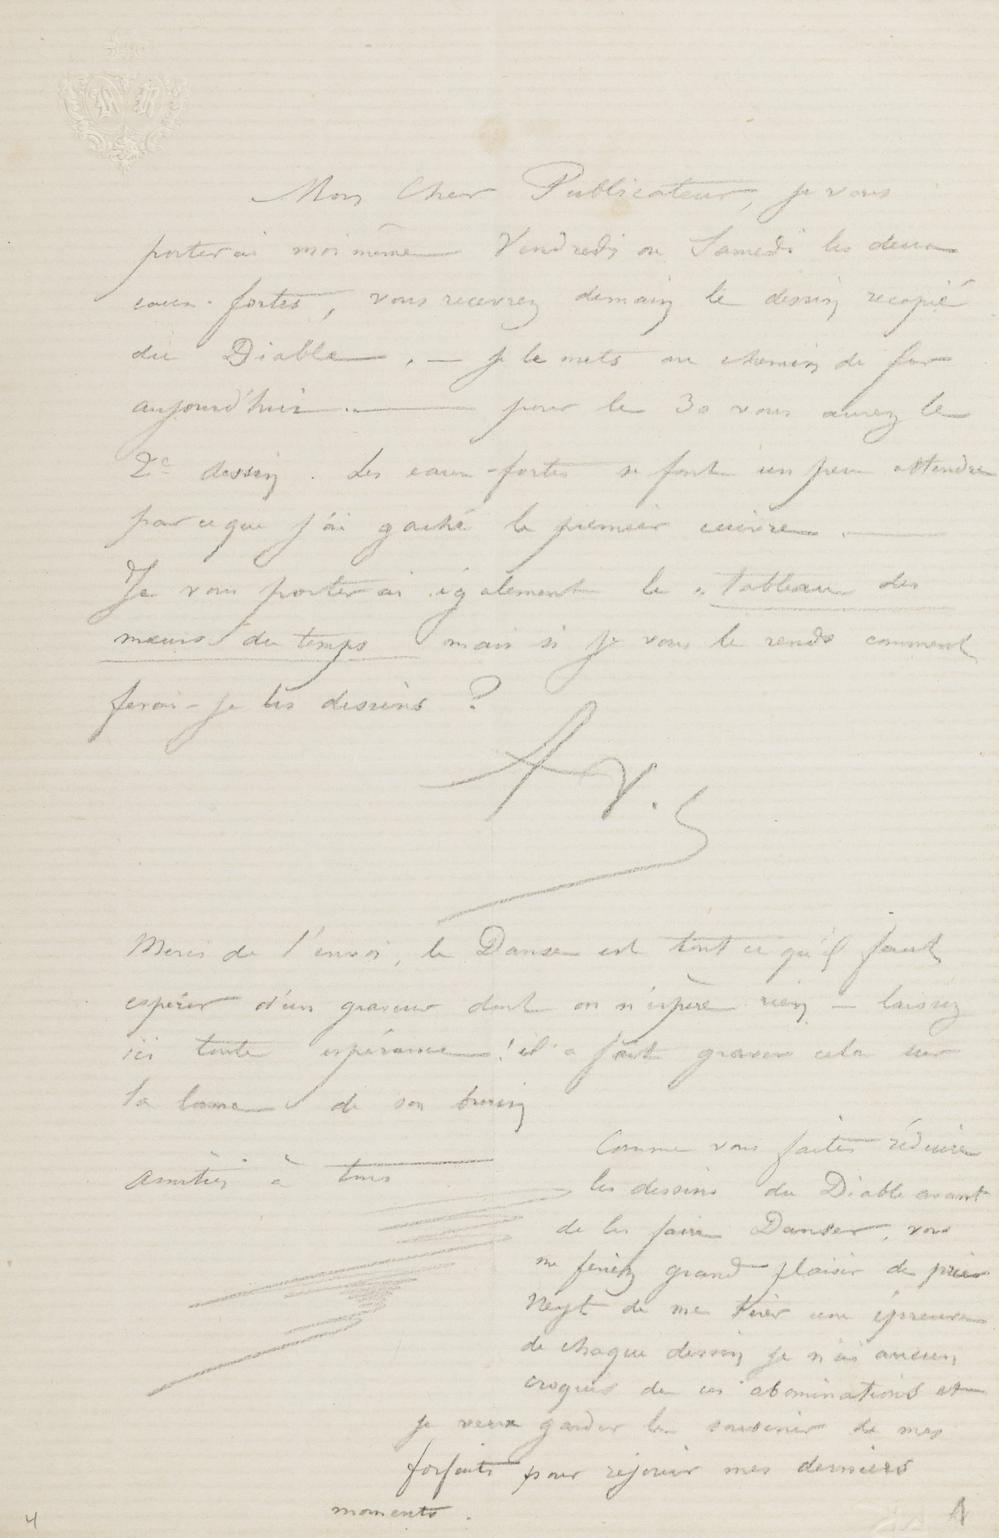 Mon Cher Publicateur, je vous
porterai moi même Vendredi ou Samedi les deux
eaux-fortes, vous recevrez demain le dessin recopié
du Diable. — Je le mets au chemin de fer
aujourd'hui. — pour le 30 vous aurez le
2e dessin. Les eaux-fortes se font un peu attendre
parceque j'ai gaché le premier cuivre. —
Je vous porterai également le "tableau des
mœurs du temps mais si je vous le rends comment
ferai-je les dessins ?
Merci de l'envoi, la Danse est tout ce qu'il faut
espérer d'un graveur dont on n'espère rien — laissez
ici toute espérance! il a fait graver cela sur
la lame de son burin
amitiés à tous
Comme vous faites réduire
les dessins du Diable avant
de les faire Danser, vous
me feriez grand plaisir de prier
Neyt de me tirer une épreuve
de chaque dessin je n'ai aucun
croquis de ces abominations et
je veux garder le souvenir de mes
forfaits pour réjouir mes derniers
moments.
4